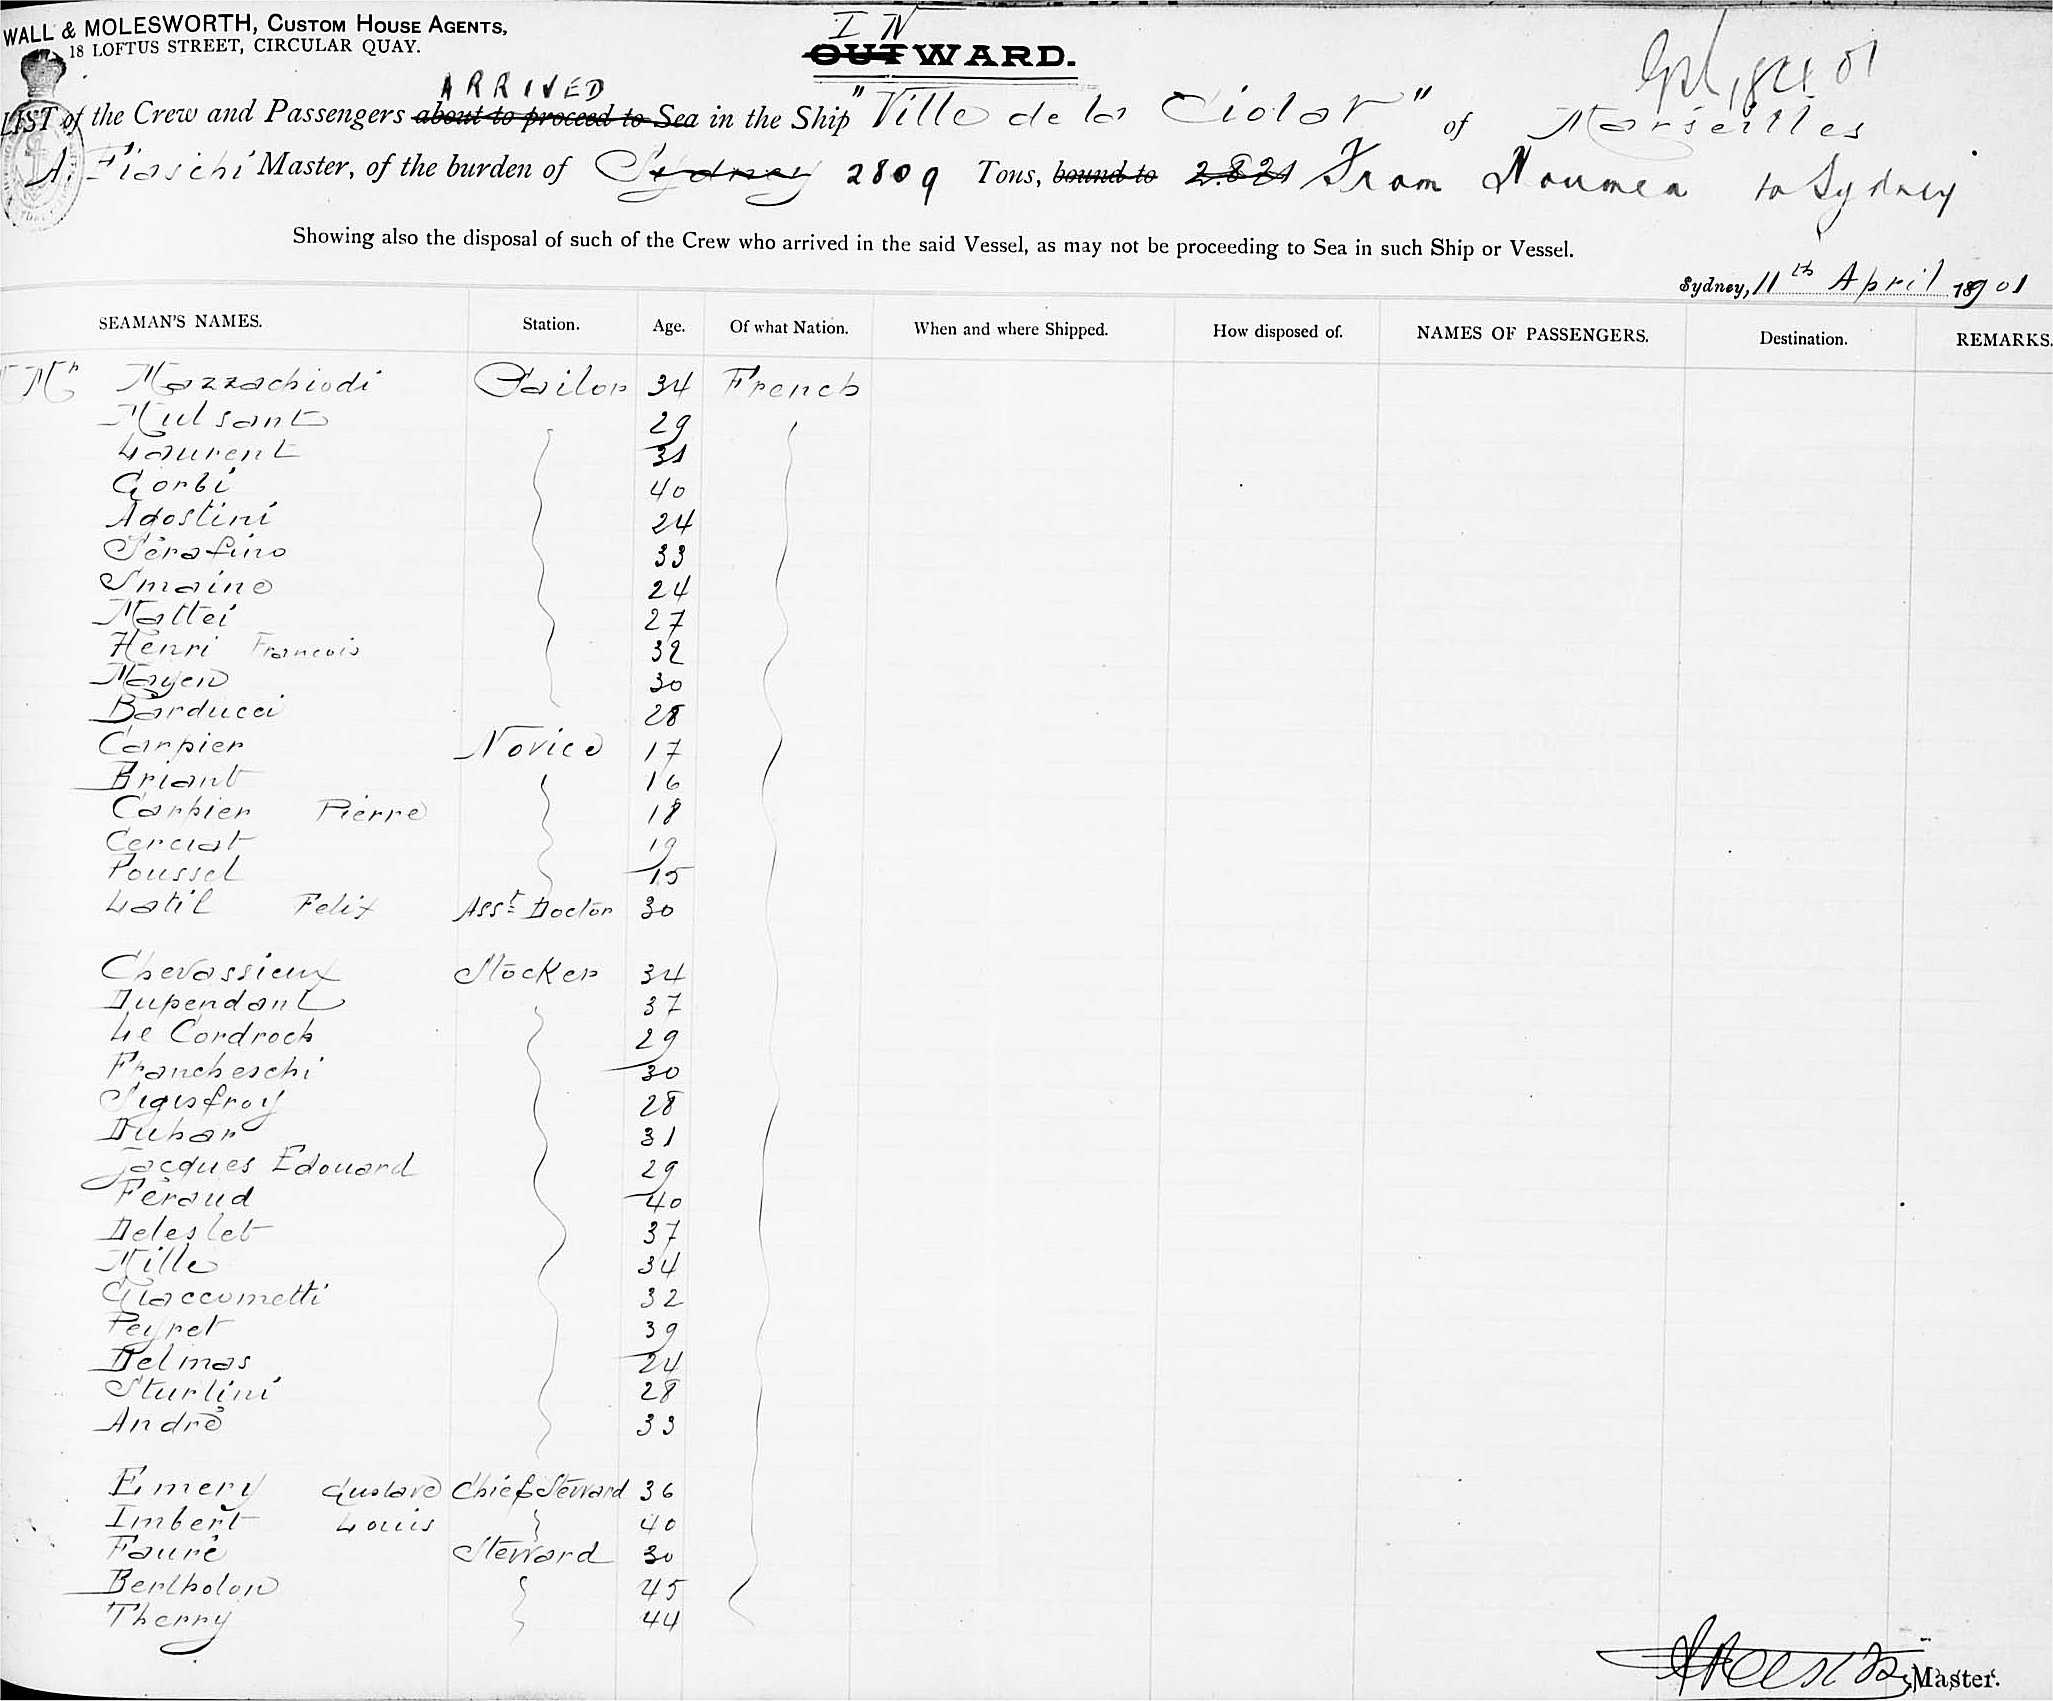 WALL & MOLESWORTH, CUSTOM HOUSE AGENTS,
18 LOFTUS STREET, CIRCULAR QUAY.
IN
OUTWARD.
ARRIVED
LIST of the Crew and Passengers about to proceed to Sea in the Ship "Ville de la Ciotat" of Marseilles
A. Fiaschi Master, of the burden of Sydney 2809 Tons, bound to 2.821 From Noumea to Sydney
Showing also the disposal of such of the Crew who arrived in the said Vessel, as may not be proceeding to Sea in such Ship or Vessel.
Sydney, 11th April 1901
SEAMAN'S NAMES. Station. Age. Of what Nation. When and where Shipped. How disposed of. NAMES OF PASSENGERS. Destination. REMARKS.
Mr Mazzachiodi Sailor 34 French
Mulsant 29
Laurent 31
Gorbi 40
Agostini 24
Sérafino 33
Smaine 24
Mattei 27
Henri Francois 32
Mayen 30
Barducci 28
Carpier Novice 17
Briant 16
Carpier Pierre 18
Cerciat 19
Poussel 15
Latil Felix Asst Doctor 30
Chevassieux Stocker 34
Dupendant 37
Le Cordroch 29
Francheschi 30
Sigisfroy 28
Duhar 31
Jacques Edouard 29
Féraud 40
Deleslet 37
Mille 34
Giaccometti 32
Peyret 39
Delmas 24
Sturlini 28
André 33
Emery Gustave Chief Steward 36
Imbert Louis 40
Faure Steward 30
Bertholon 45
Therry 44
Master.